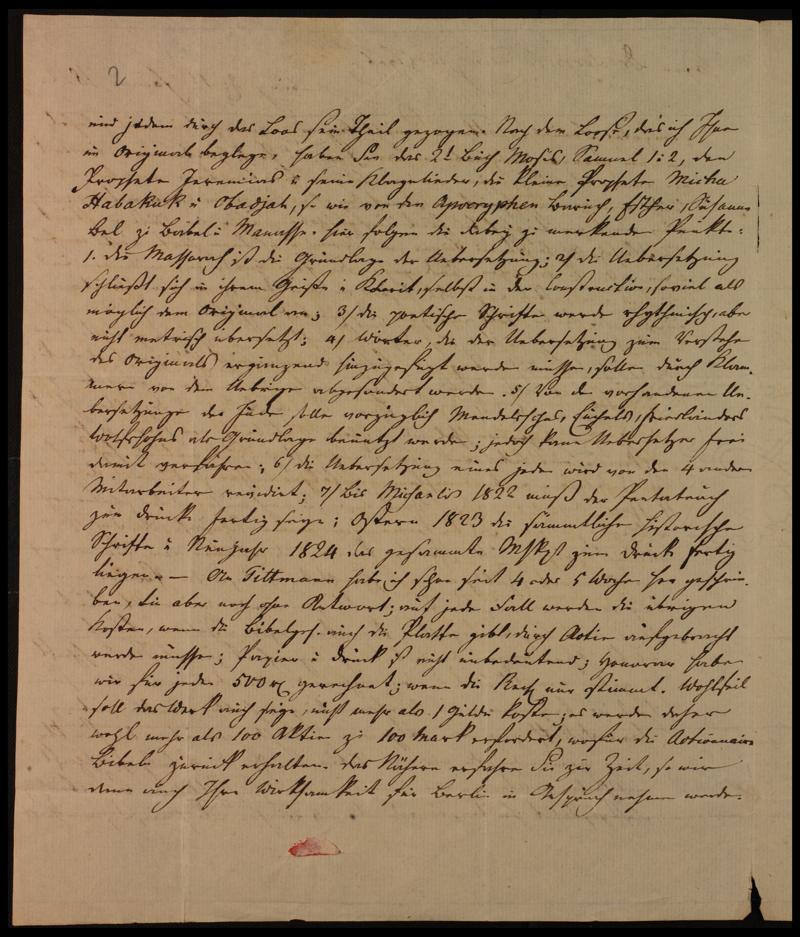 2
und jedem durch das Loos sein Theil gezogen. Nach dem Loose, das ich Ihnen
im Original beylege, haben Sie das 2t Buch Mosis, Samuel 1 u 2, den
Propheten Jeremias u seine Klagelieder, die kleinen Propheten Micha
Habakuk u Obadjah, so wie von den Apocryphen Baruch, Esther, Susanna
Bel zu Babel u Manasse. Hier folgen die dabey zu merkenden Punkte:
1. die Massorah ist die Grundlage der Uebersetzung; 2/ die Uebersetzung
schließt sich in ihrem Geiste u Kolorit, selbst in der Construction, soviel als
möglich dem Original an; 3/ die poetischen Schriften werden rhythmisch, aber
nicht metrisch übersetzt; 4/ Wörter, die der Uebersetzung zum Verstehen
des Originals ergänzend hinzugefügt werden müssen, sollen durch Klam-
mern von dem Uebrigen abgesondert werden. 5/ Von den vorhandenen Ue-
bersetzungen der Juden sollen vorzüglich Mendelssohns, Euchels, Friedländers
Wolfssohns als Grundlage benutzt werden; jedoch kann Uebersetzer frei
damit verfahren; 6/ die Uebersetzung eines jeden wird von den 4 andern
Mitarbeitern revidirt; 7/ bis Michaelis 1822 muß der Pentateuch
zum Druck fertig seyn; Ostern 1823 die sämmtlichen historischen
Schriften u Neujahr 1824 das gesammte Mskpt zum Druck fertig
liegen. — An Tittmann habe ich schon seit 4 oder 5 Wochen her geschrie-
ben, bin aber noch ohne Antwort; auf jeden Fall werden die übrigen
Kosten, wenn die Bibelges. auch die Platten gibt, durch Actien aufgebracht
werden müssen; Papier u Druck ist nicht unbedeutend; Honorar haben
wir für jeden 500 rt gerechnet; wenn die Rech nur stimmt. Wohlfeil
soll das Werk auch seyn, nicht mehr als 1 Gulden kosten; es werden daher
wohl mehr als 100 Aktien zu 100 Mark erfordert, wofür die Actionairs
Bibeln zurück erhalten. Das Nähere erfahren Sie zur Zeit, so wie
denn auch Ihre Wirksamkeit für Berlin in Anspruch nehmen werde.